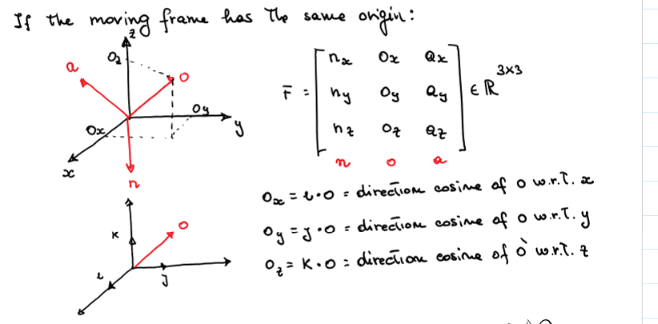 If the moving frame has the same origin:
z
a
Oz
O
Oy
Ox
y
x
n
F = [ nx Ox ax
ny Oy ay
nz Oz az ] ∈ ℝ 3×3
n o a
Ox = i · o = direction cosine of o w.r.t. x
Oy = j · o = direction cosine of o w.r.t. y
Oz = K · o = direction cosine of o w.r.t. z
K
O
i
j